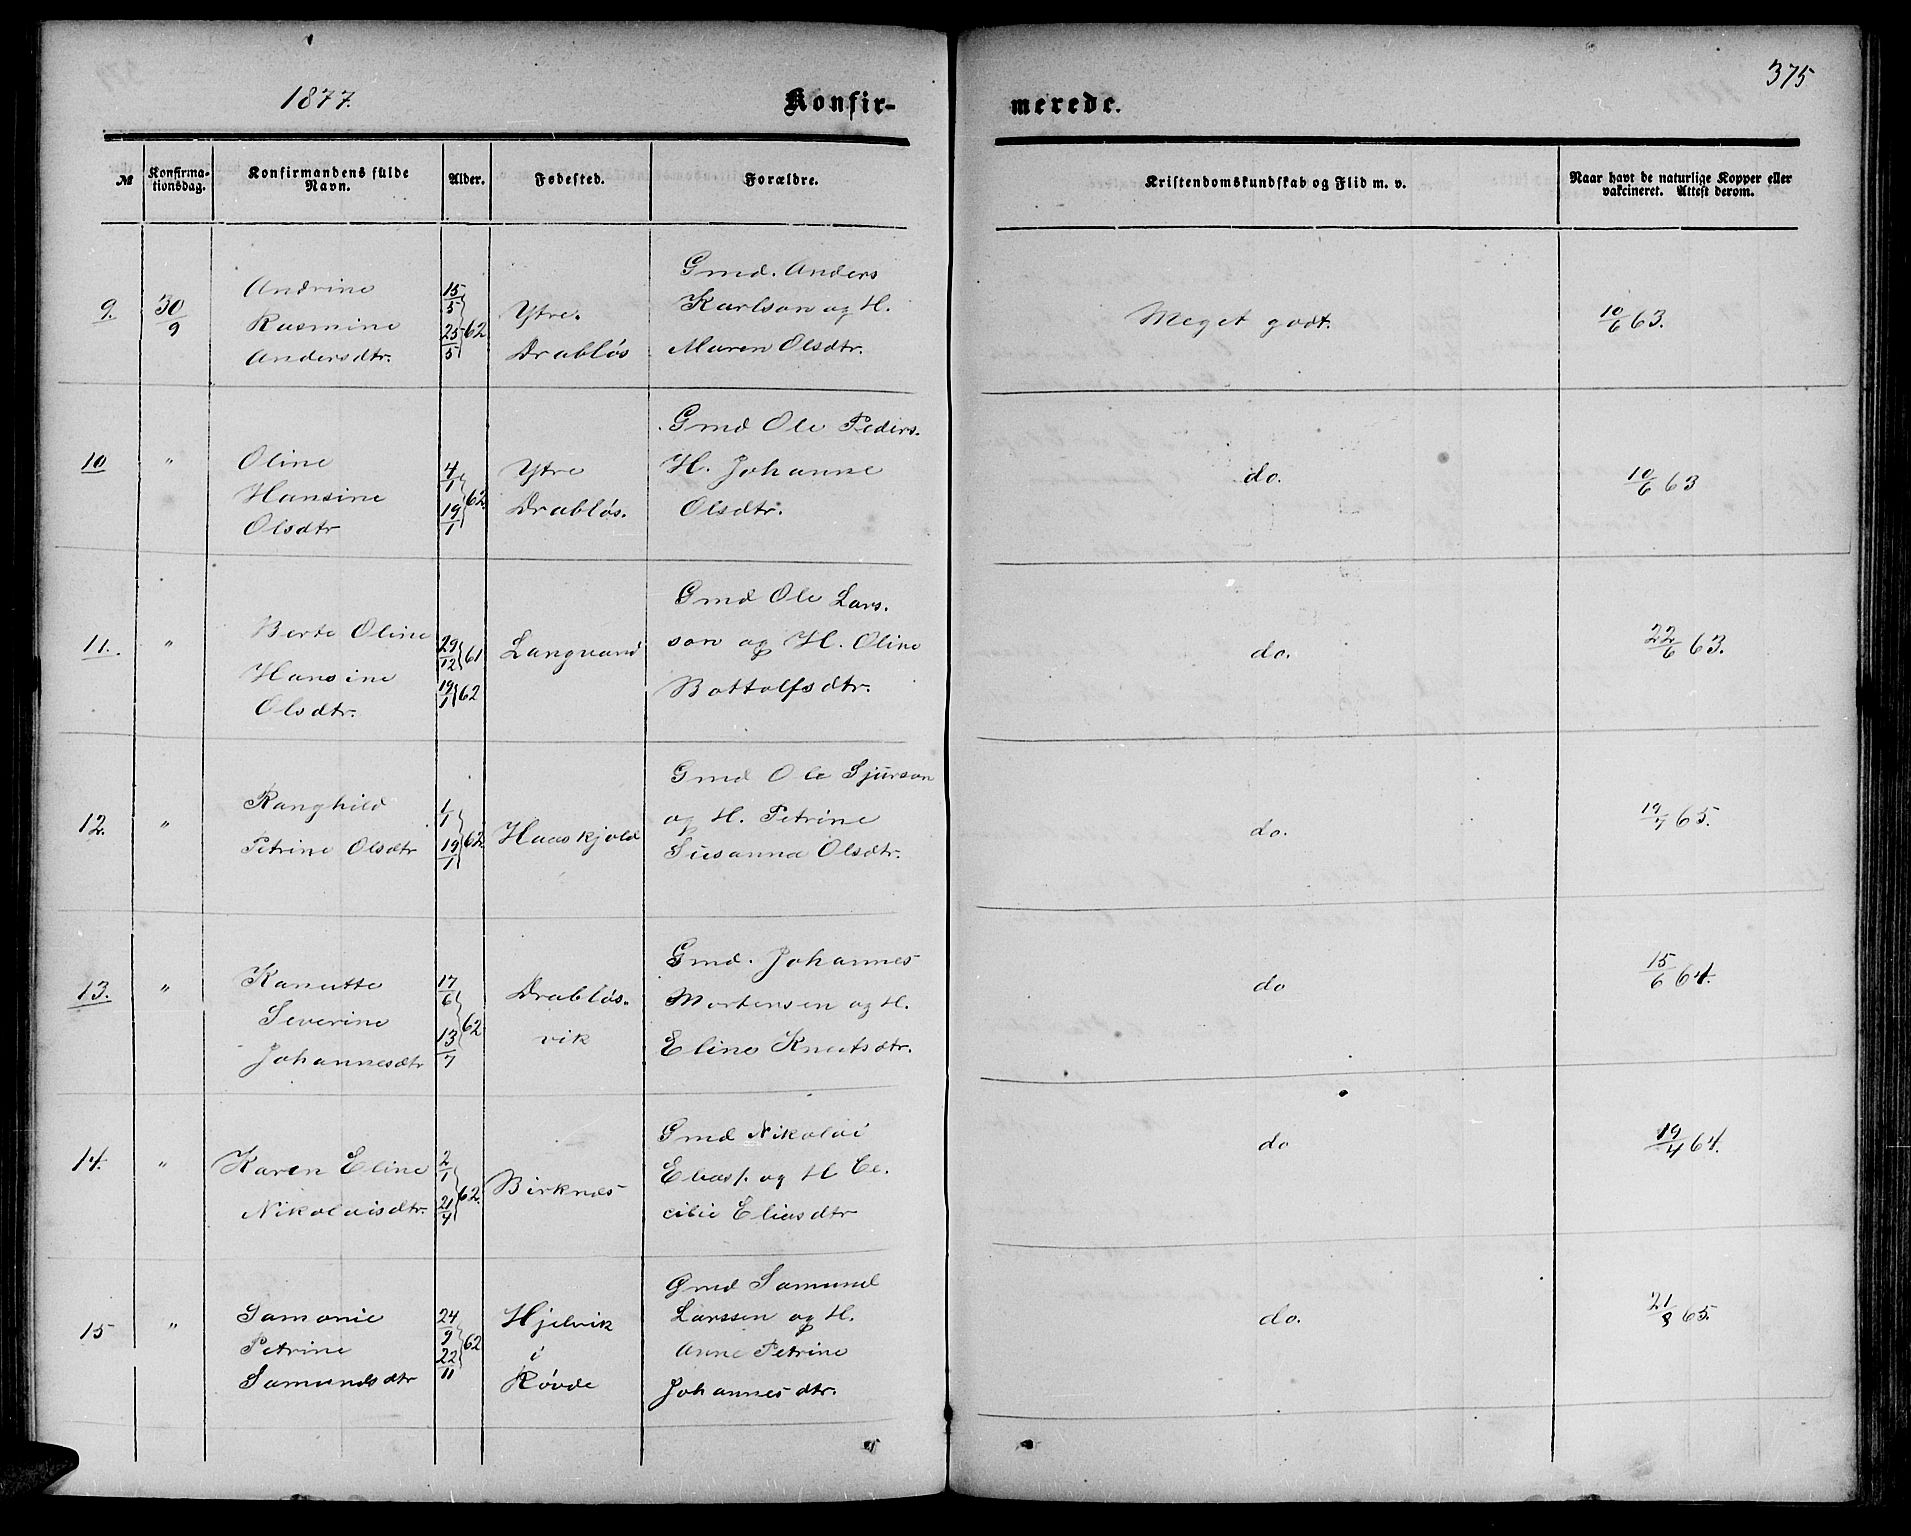 375
1877.
Konfir-
merede.
№
Konfirma-
tionsdag.
Konfirmandens fulde
Navn.
Alder.
Fødested.
Forældre.
Kristendomskundskab og Flid m. v.
Naar havt de naturlige Kopper eller
vakcineret. Attest derom.
9. 30/9
Andrine
Rasmine
Andersdtr.
15/5 25/5 62
Ytre.
Drabløs
Gmd. Anders
Karlson og H.
Maren Olsdtr.
Meget godt.
10/6 63.
10 "
Oline
Hansine
Olsdtr
4/1 19/1 62.
Ytre
Drabløs.
Gmd Ole Peders.
H. Johanne
Olsdtr.
do.
10/6 63
11. "
Berte Oline
Hansine
Olsdtr.
29/12 61
19/1 62
Langvand
Gmd Ole Lars.
son og H. Oline
Bottolfsdtr.
do.
22/6 63.
12. "
Ranghild
Petrine Olsdtr
1/1 19/1 62.
Haaskjold
Gmd Ole Sjurson
og H. Petrine
Susanna Olsdtr.
do.
19/7 65.
13. "
Kanutte
Severine
Johannesdtr
17/6 13/7 62
Drabløs.
vik
Gmd. Johannes
Mortensen og H.
Eline Knutsdtr.
do
15/6 64.
14. "
Karen Eline
Nikolaisdtr.
2/1 21/4 62.
Birknes
Gmd Nikolai
Elias. og H Ce.
cilie Eliasdtr
do
19/4 64.
15 "
Samonie
Petrine
Samundsdtr
24/9 22/11 62
Hjelvik
i
Røvde
Gmd Samund
Larssen og H.
Anne Petrine
Johannesdtr.
do.
21/8 65.